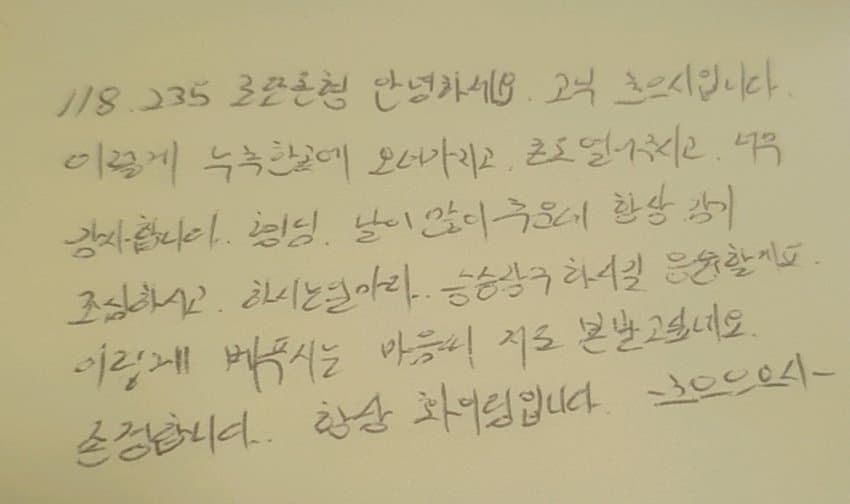 118.235 로또은형 안녕하세요. 고닉 츠으시입니다.
이렇게 누추한곳에 오셔가지고. 손도 얼어주시고. 너무
감사합니다. 형님. 날이 많이 추운데 항상 감기
조심하시고. 하시는일마다.. 승승장구 하시길 응원할게요.
이렇게 베푸시는 마음씨 저도 본받고싶네요.
존경합니다.. 항상 화이팅입니다. -츠으으으시-